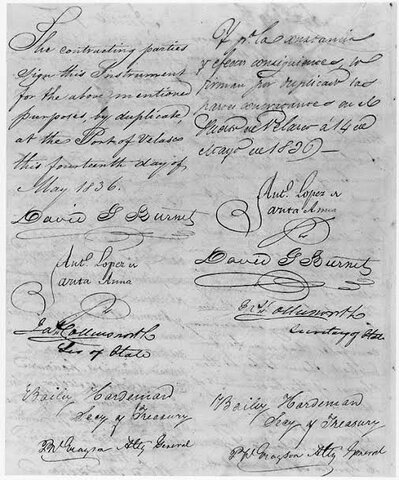 The contracting parties
Sign this Instrument
for the above mentioned
purposes, by duplicate,
at the Port of Velasco
this fourteenth day of
May 1836.
David G Burnet
Ant.º Lopez de
Santa Anna
Jas Collinsworth
Sec of State
Baily Hardeman
Secy of Treasury
P W Grayson Atty General
Y p.ª la constancia
y efectos consiguientes, lo
firman por duplicado las
partes contratantes en el
Puerto de Velasco á 14 de
Mayo de 1836—
Ant.º Lopez de
Santa Anna
David G Burnet
Jas Collinsworth
Secretary of State
Baily Hardeman
Secy of Treasury
P W Grayson Atty General